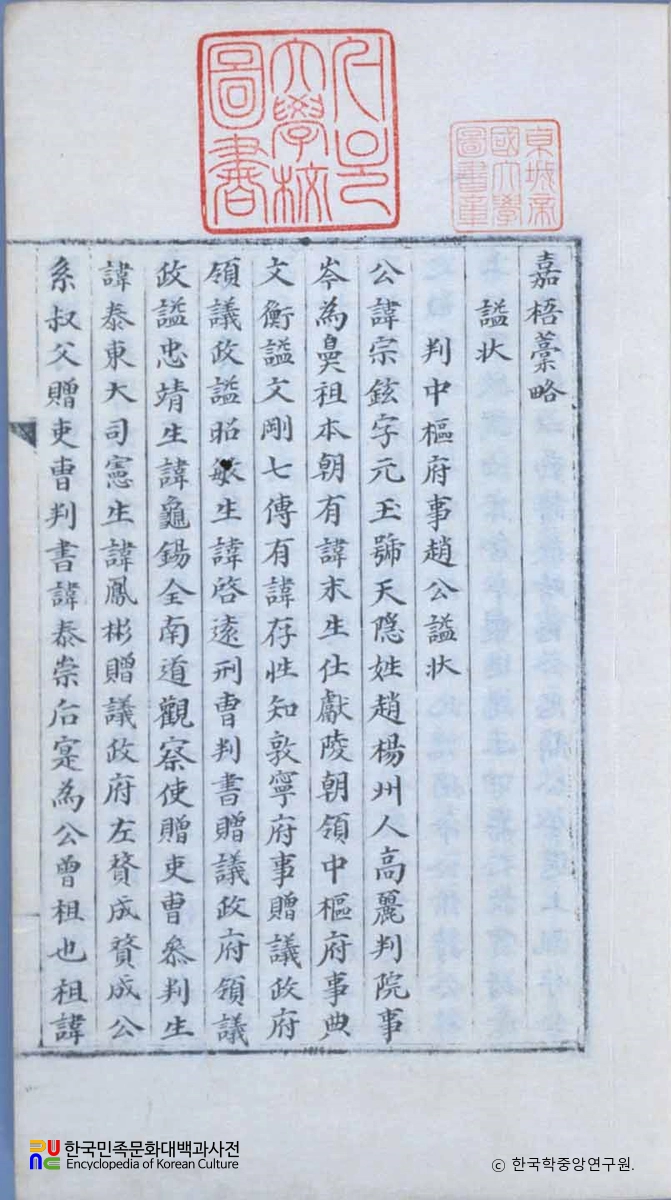 서울大學校圖書
京城帝國大學圖書章
嘉梧藁略
諡狀
判中樞府事趙公諡狀
公諱宗鉉字元玉號天隱姓趙楊州人高麗判院事
岑為鼻祖本朝有諱末生仕獻陵朝領中樞府事典
文衡諡文剛七傳有諱存性知敦寧府事贈議政府
領議政諡昭敏生諱啓遠刑曹判書贈議政府領議
政諡忠靖生諱龜錫全南道觀察使贈吏曹叅判生
諱泰東大司憲生諱鳳彬贈議政府左贊成贊成公
系叔父贈吏曹判書諱泰崇后寔為公曾祖也祖諱
한국민족문화대백과사전
Encyclopedia of Korean Culture
ⓒ 한국학중앙연구원.